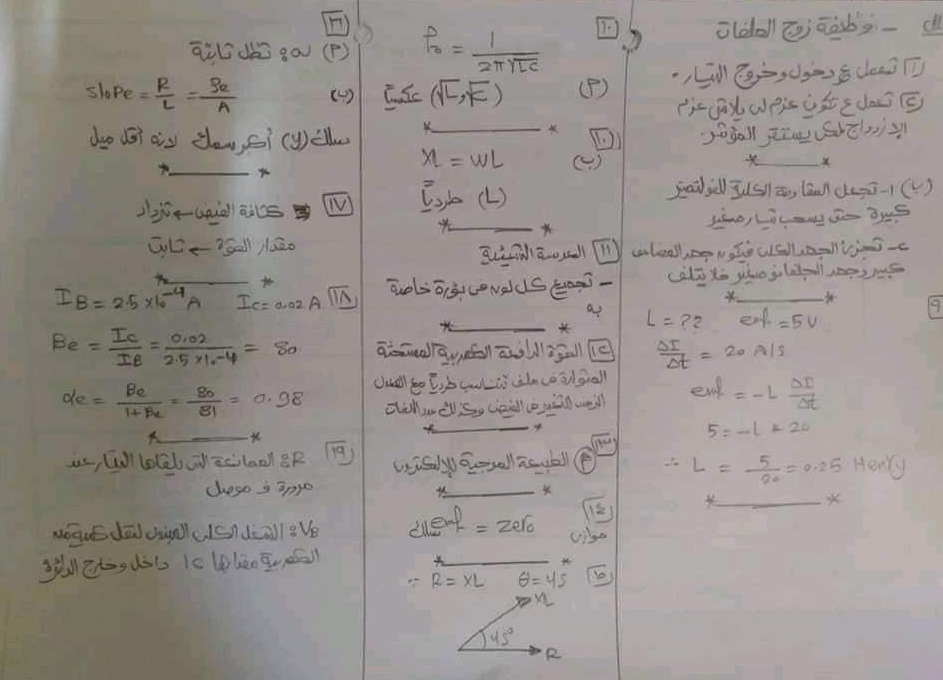 - وظيفة زوج الملفات
١) تعمل ع دخول وخروج التيار.
٢) تعمل ع تكوين عزم لى يلاشى عزم
الإزدواج لكى يستقر المؤشر.
(ب) ١- تجعل المقاومة الكلية للفولتميتر
كبيرة حتى يسحب تيار صغير
٢- تجزئ الجهد الكلى فيكون جهد المضاعف
كبير وجهد الجلفانو صغير فلا يتلف
٩
L = ?? emf = 5V
ΔI/Δt = 20 A/s
emf = -L ΔI/Δt
5 = -L * 20
∴ L = 5/20 = 0.25 Henry
١٠
f₀ = 1/2π√LC
(٢) (√L و √C) عكسياً
١٠
(ب) XL = WL
(L) طردياً
١١ العدسة الشيئية
- تجميع كل لون فى بؤرة خاصة
به
١٢ القوة الدافعة الكهربية المستحثة
المتولدة فى ملف تتناسب طردياً مع المعدل
الزمنى للتغير فى الفيض وكذلك عدد اللفات
١٣ الطبيعة الموجية للإلكترون
١٤ emf سلك = Zero
موازى
١٥ ∴ R = XL θ = 45
XL
45°
R
١٦
(٢) ثابتة تظل
(ب) Slope = R/L = ρe/A
سلك (y) أكبر سمك لانه أقل ميل
١٧ كثافة الفيض ← تزداد
مقدار القوة ← ثابت
١٨ IB = 2.5 x10⁻⁴ A Ic = 0.02 A
Be = Ic/IB = 0.02/2.5 x10-4 = 80
αe = Be/1+Be = 80/81 = 0.98
١٩ R: الممانعة التى يلقاها التيار عند
مروره ف موصل
VB: الشغل الكلى المبذول لنقل كمية من
الكهربية مقدارها 1C داخل وخارج الدائرة